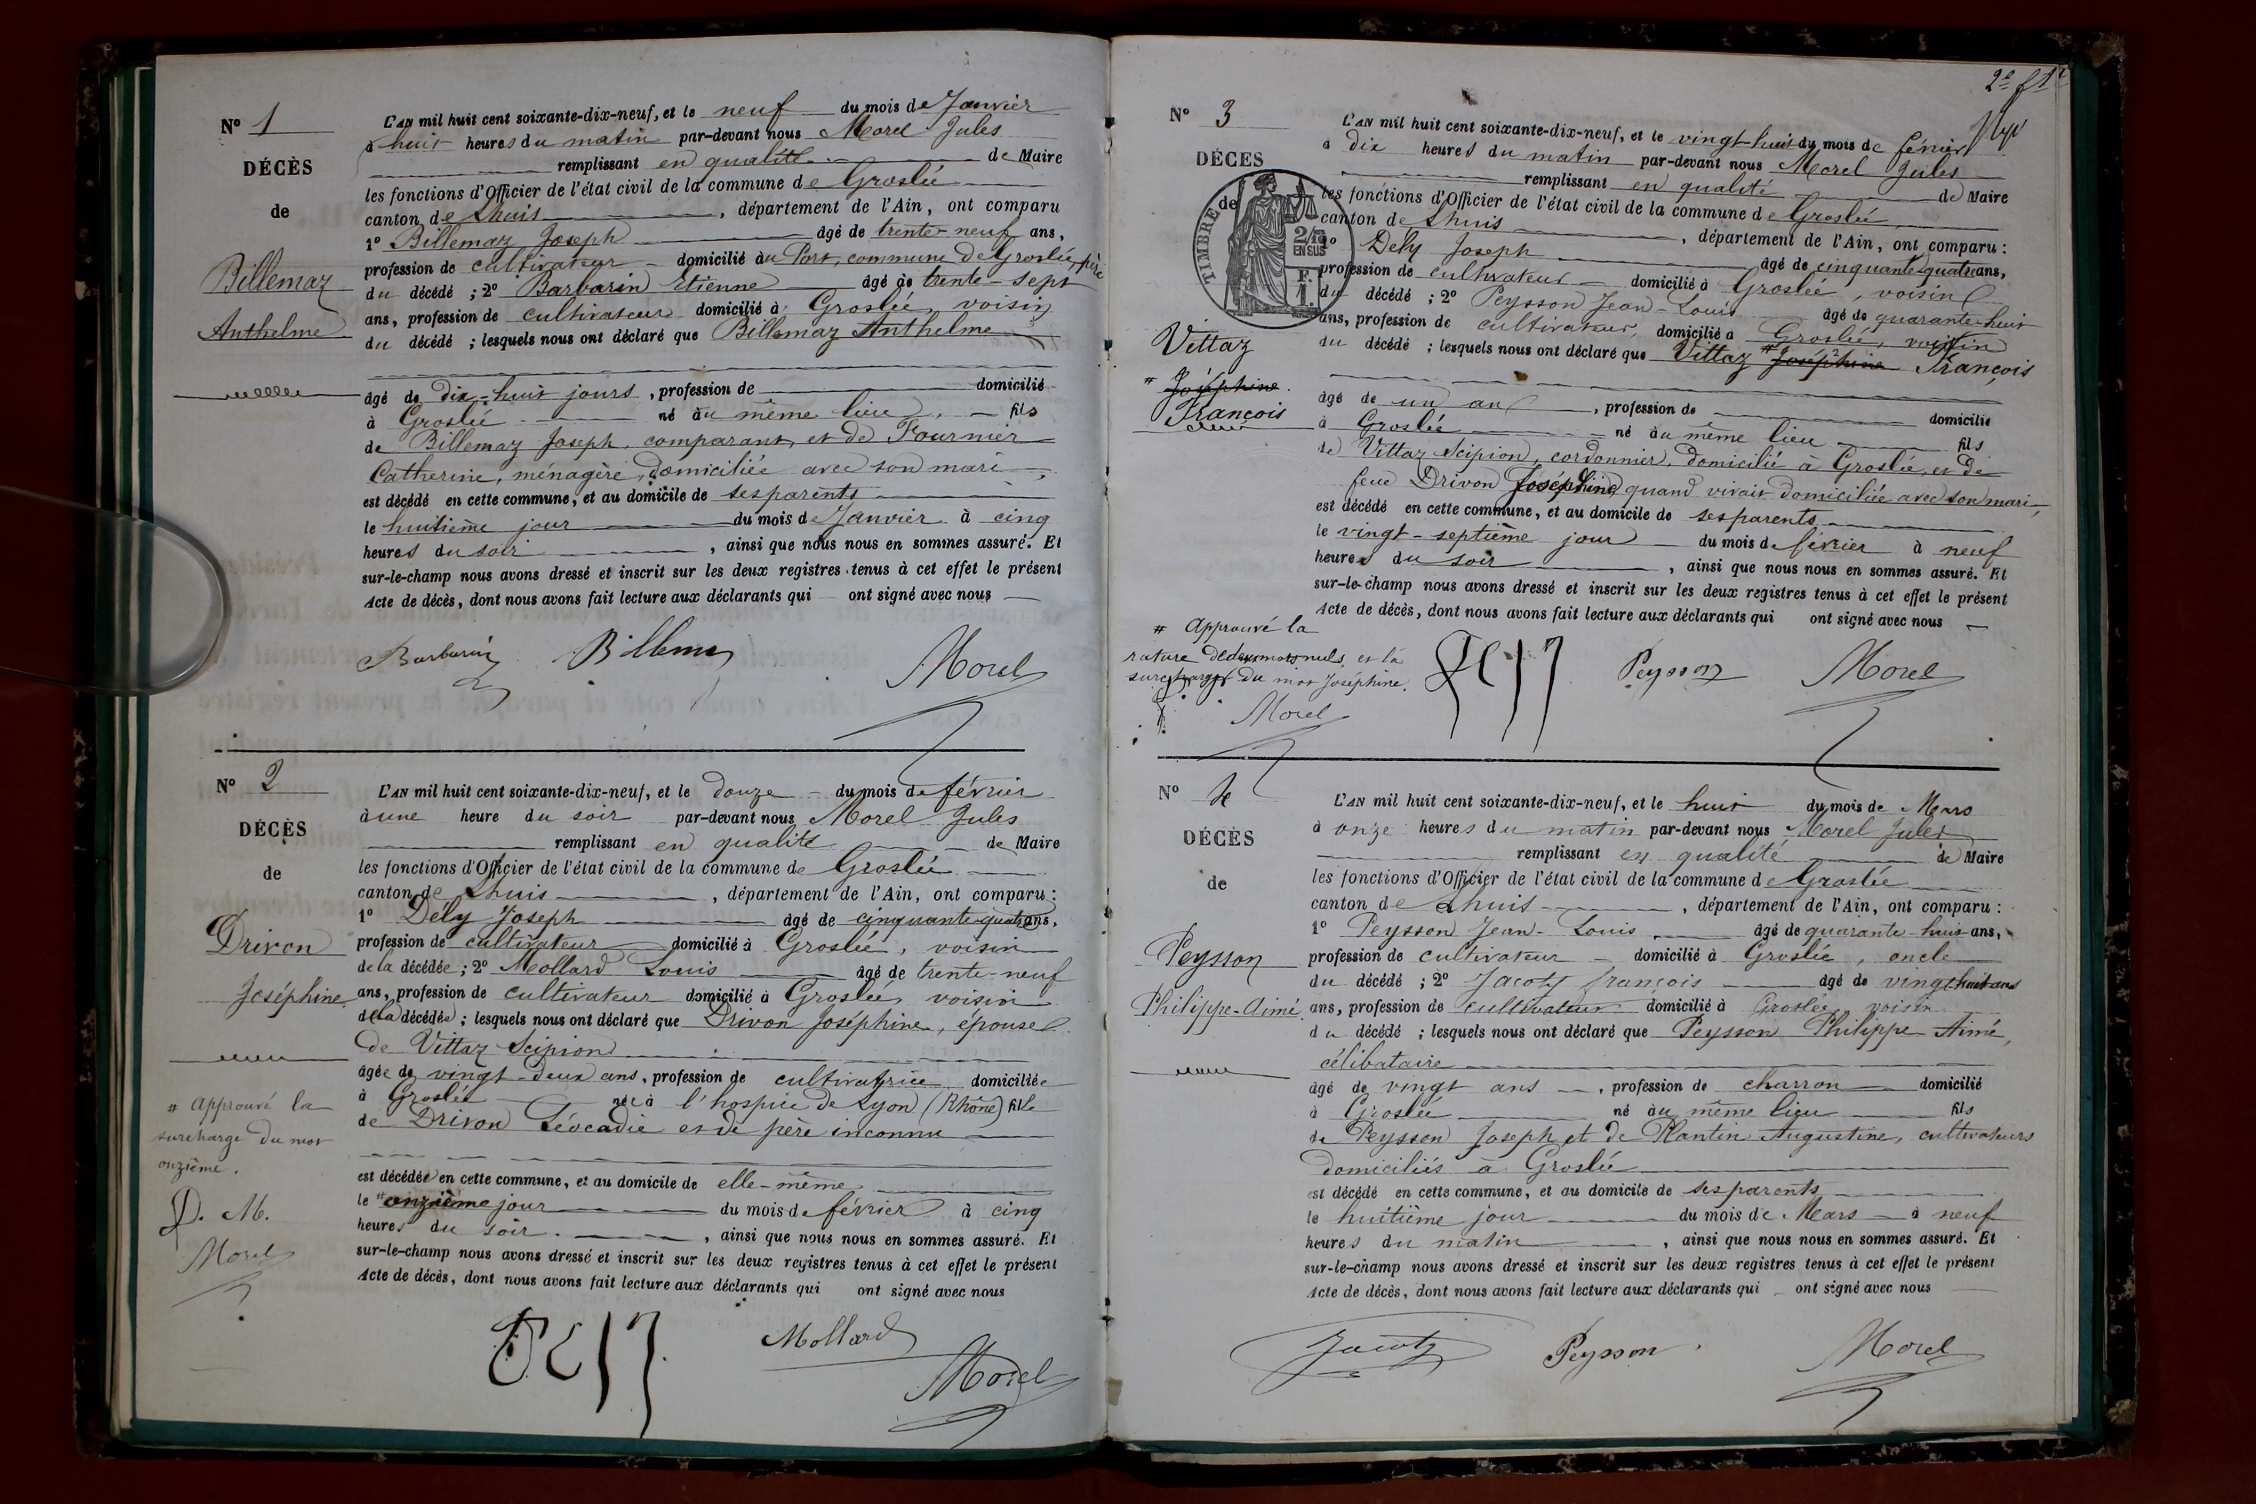 Nº 1
DÉCÈS
de
Billemaz
Anthelme
L'AN mil huit cent soixante-dix-neuf, et le neuf du mois de Janvier
à huit heures du matin par-devant nous Morel Jules
remplissant en qualité de Maire
les fonctions d'Officier de l'état civil de la commune de Groslée
canton de Lhuis, département de l'Ain, ont comparu
1º Billemaz Joseph âgé de trente-neuf ans,
profession de cultivateur domicilié au Port, commune de Groslée, père
du décédé ; 2º Barbarin Etienne âgé de trente-sept
ans, profession de cultivateur domicilié à Groslée, voisin
du décédé ; lesquels nous ont déclaré que Billemaz Anthelme
âgé de dix-huit jours, profession de domicilié
à Groslée né au même lieu, fils
de Billemaz Joseph, comparant, et de Fournier
Catherine, ménagère, domiciliée avec son mari
est décédé en cette commune, et au domicile de ses parents
le huitième jour du mois de Janvier à cinq
heures du soir, ainsi que nous nous en sommes assuré. Et
sur-le-champ nous avons dressé et inscrit sur les deux registres tenus à cet effet le présent
Acte de décès, dont nous avons fait lecture aux déclarants qui ont signé avec nous
Barbarin Billemaz Morel
Nº 2
DÉCÈS
de
Drivon
Joséphine
# Approuvé la
surcharge du mot
onzième.
D. M.
Morel
L'AN mil huit cent soixante-dix-neuf, et le douze du mois de février
à une heure du soir par-devant nous Morel Jules
remplissant en qualité de Maire
les fonctions d'Officier de l'état civil de la commune de Groslée
canton de Lhuis, département de l'Ain, ont comparu :
1º Dély Joseph âgé de cinquante-quatre ans,
profession de cultivateur domicilié à Groslée, voisin
de la décédée ; 2º Mollard Louis âgé de trente-neuf
ans, profession de cultivateur domicilié à Groslée, voisin
de la décédée ; lesquels nous ont déclaré que Drivon Joséphine, épouse
de Vittaz Scipion
âgée de vingt-deux ans, profession de cultivatrice domiciliée
à Groslée née à l'hospice de Lyon (Rhône) fille
de Drivon Léocadie et de père inconnu
est décédée en cette commune, et au domicile de elle-même
le # onzième jour du mois de février à cinq
heures du soir, ainsi que nous nous en sommes assuré. Et
sur-le-champ nous avons dressé et inscrit sur les deux registres tenus à cet effet le présent
Acte de décès, dont nous avons fait lecture aux déclarants qui ont signé avec nous
Mollard
Morel
2e f t
Nº 3
DÉCÈS
de
TIMBRE
2/10
EN SUS
F.
1.
Vittaz
# Joséphine
François
# Approuvé la
rature de deux mots nuls et la
surcharge du mot Joséphine.
Morel
L'AN mil huit cent soixante-dix-neuf, et le vingt-huit du mois de février
à dix heures du matin par-devant nous Morel Jules
remplissant en qualité de Maire
les fonctions d'Officier de l'état civil de la commune de Groslée
canton de Lhuis, département de l'Ain, ont comparu :
1º Dély Joseph âgé de cinquante-quatre ans,
profession de cultivateur domicilié à Groslée, voisin
du décédé ; 2º Peysson Jean-Louis âgé de quarante-huit
ans, profession de cultivateur, domicilié à Groslée, voisin
du décédé ; lesquels nous ont déclaré que Vittaz # Joséphine François
âgé de un an, profession de domicilié
à Groslée né au même lieu fils
de Vittaz Scipion, cordonnier, domicilié à Groslée, et de
feue Drivon Joséphine, quand vivait domiciliée avec son mari,
est décédé en cette commune, et au domicile de ses parents
le vingt-septième jour du mois de février à neuf
heures du soir, ainsi que nous nous en sommes assuré. Et
sur-le-champ nous avons dressé et inscrit sur les deux registres tenus à cet effet le présent
Acte de décès, dont nous avons fait lecture aux déclarants qui ont signé avec nous
Peysson Morel
Nº 4
DÉCÈS
de
Peysson
Philippe-Aimé
L'AN mil huit cent soixante-dix-neuf, et le huit du mois de Mars
à onze heures du matin par-devant nous Morel Jules
remplissant en qualité de Maire
les fonctions d'Officier de l'état civil de la commune de Groslée
canton de Lhuis, département de l'Ain, ont comparu :
1º Peysson Jean-Louis âgé de quarante-huit ans,
profession de cultivateur domicilié à Groslée, oncle
du décédé ; 2º Jacoty françois âgé de vingt-huit ans
ans, profession de cultivateur domicilié à Groslée, voisin
du décédé ; lesquels nous ont déclaré que Peysson Philippe Aimé,
célibataire
âgé de vingt ans, profession de charron domicilié
à Groslée né au même lieu fils
de Peysson Joseph et de Plantin Augustine, cultivateurs
domiciliés à Groslée
est décédé en cette commune, et au domicile de ses parents
le huitième jour du mois de Mars à neuf
heures du matin, ainsi que nous nous en sommes assuré. Et
sur-le-champ nous avons dressé et inscrit sur les deux registres tenus à cet effet le présent
Acte de décès, dont nous avons fait lecture aux déclarants qui ont signé avec nous
Jacoty Peysson Morel